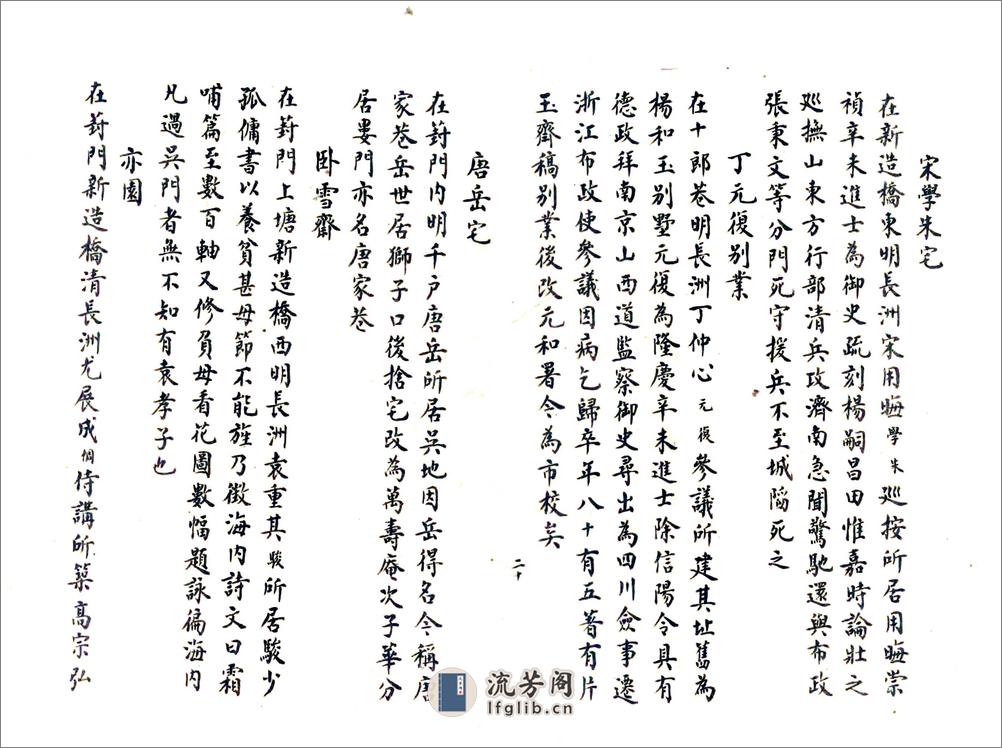 宋學朱宅
在新造橋東明長洲宋用晦學朱廵按所居用晦崇
禎辛未進士為御史疏刻楊嗣昌田惟嘉時論壯之
廵撫山東方行部清兵攻濟南急聞驚馳還與布政
張秉文等分門死守援兵不至城陷死之
丁元復別業
在十郎巷明長洲丁仲心元復參議所建其址舊為
楊和玉別墅元復為隆慶辛未進士除信陽令具有
德政拜南京山西道監察御史尋出為四川僉事遷
浙江布政使參議因病乞歸卒年八十有五著有片
玉齋稿別業後改元和署今為市校矣
二十
唐岳宅
在葑門內明千户唐岳所居吳地因岳得名今稱唐
家巷岳世居獅子口後捨宅改為萬壽庵次子華分
居婁門亦名唐家巷
卧雪齋
在葑門上塘新造橋西明長洲袁重其駿所居駿少
孤傭書以養貧甚母節不能旌乃徵海內詩文曰霜
哺篇至數百軸又修負母看花圖數幅題詠徧海內
凡過吳門者無不知有袁孝子也
亦園
在葑門新造橋清長洲尤展成侗侍講所築高宗弘
流芳阁
lfglib.cn